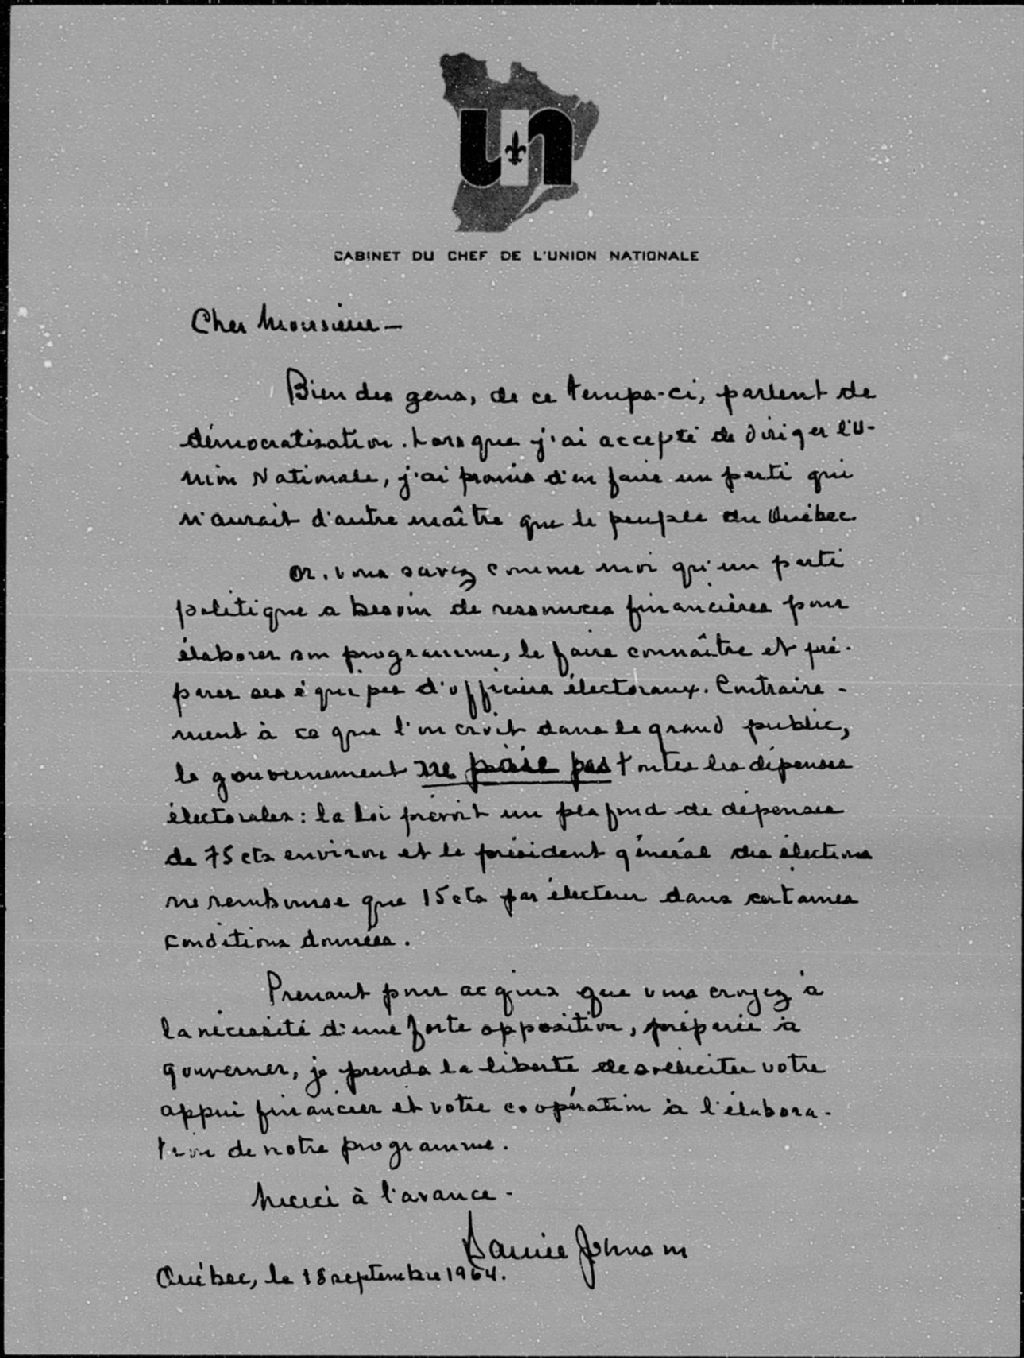 un
CABINET DU CHEF DE L'UNION NATIONALE
Cher Monsieur —
Bien des gens, de ce temps-ci, parlent de
démocratisation. Lorsque j'ai accepté de diriger l'U-
nion Nationale, j'ai promis d'en faire un parti qui
n'aurait d'autre maître que le peuple du Québec.
Or, vous savez comme moi qu'un parti
politique a besoin de ressources financières pour
élaborer son programme, le faire connaître et pré-
parer ses équipes d'officiers électoraux. Contraire-
ment à ce que l'on croit dans le grand public,
le gouvernement ne paie pas toutes les dépenses
électorales : la loi prévoit un plafond de dépenses
de 75 cts environ et le président général des élections
ne rembourse que 15 cts par électeur dans certaines
conditions données.
Prenant pour acquis que vous croyez à
la nécessité d'une forte opposition, préparée à
gouverner, je prends la liberté de solliciter votre
appui financier et votre coopération à l'élabora-
tion de notre programme.
Merci à l'avance.
Daniel Johnson
Québec, le 18 septembre 1964.